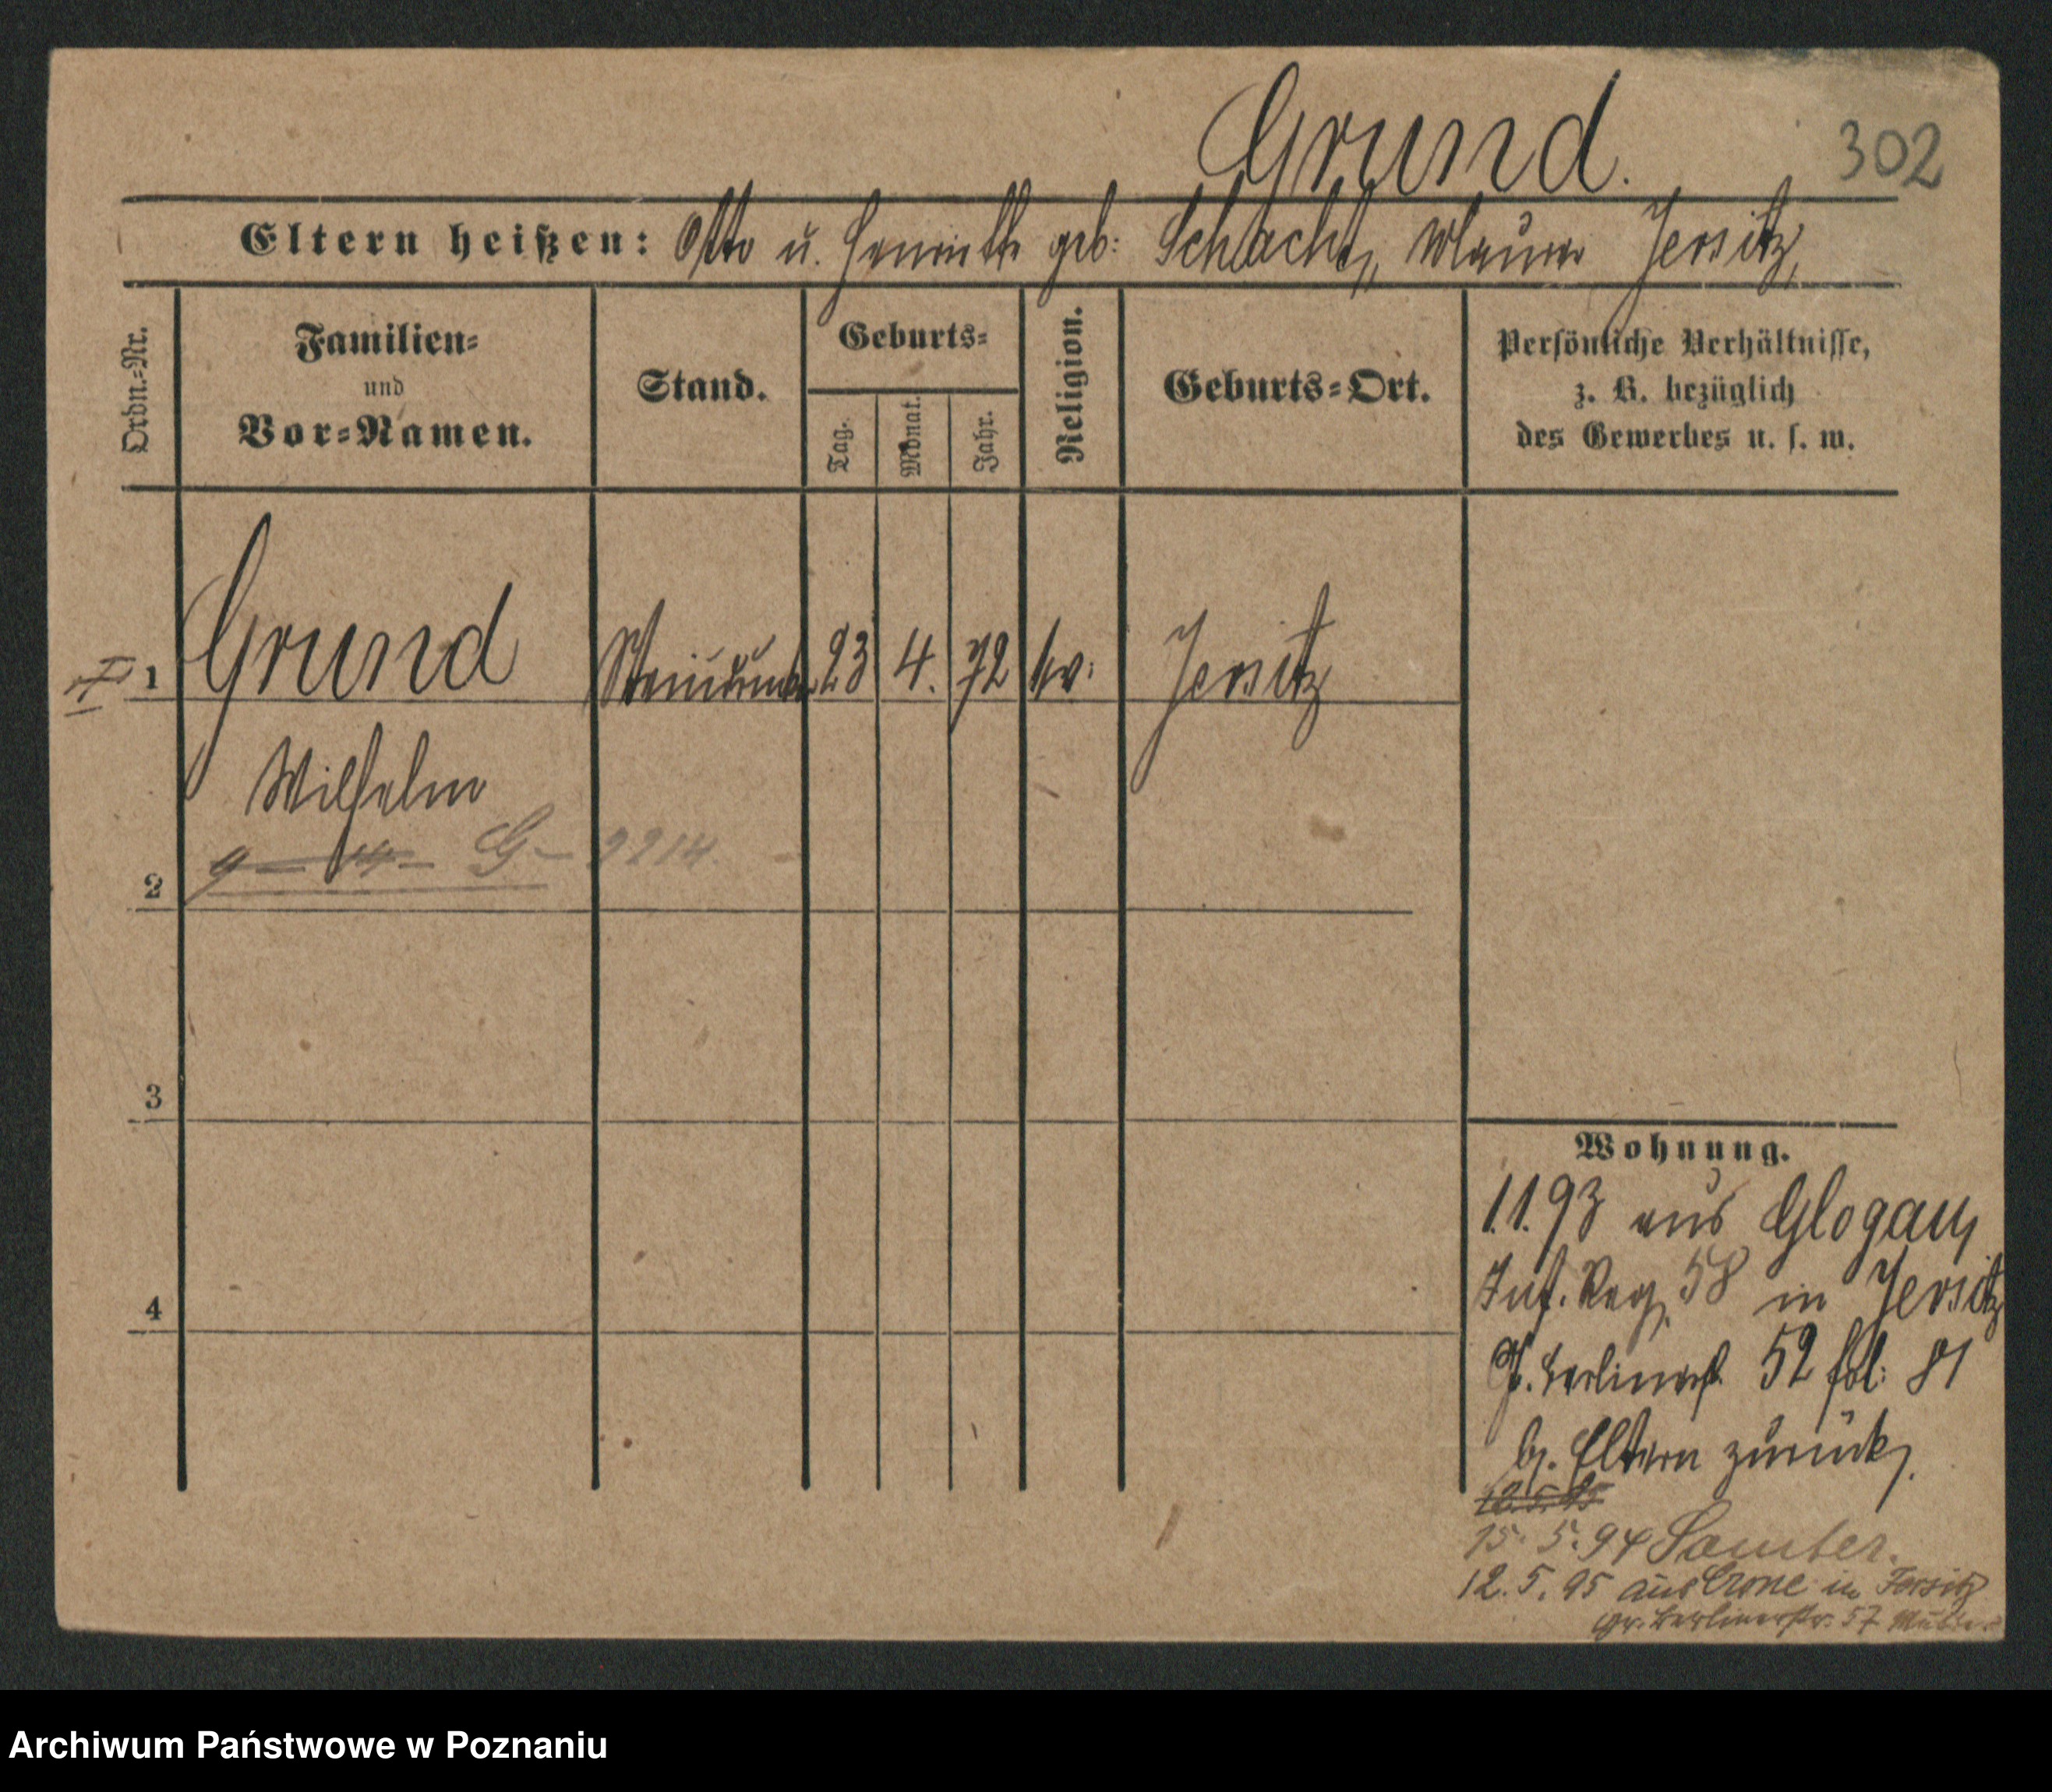 Grund.
302
Eltern heißen: Otto u. Henriette geb: Schacht, Jersitz,
Ordn.-Nr.
Familien-
und
Vor-Namen.
Stand.
Geburts-
Tag.
Monat.
Jahr.
Religion.
Geburts-Ort.
Persönliche Verhältnisse,
z. B. bezüglich
des Gewerbes u. s. w.
1 Grund 23 4. 72 ev: Jersitz
Wilhelm
G- 2214.
2
3
4
Wohnung.
1.1.93 aus Glogau,
Inf. Reg. 58 in Jersitz
Gr. Berlinerstr. 52 fol: 81
b. Eltern zurück,
12.5.95
15. 5. 94 Samter.
12. 5. 95 aus Crone in Jersitz
gr. Berlinerstr. 57
Archiwum Państwowe w Poznaniu